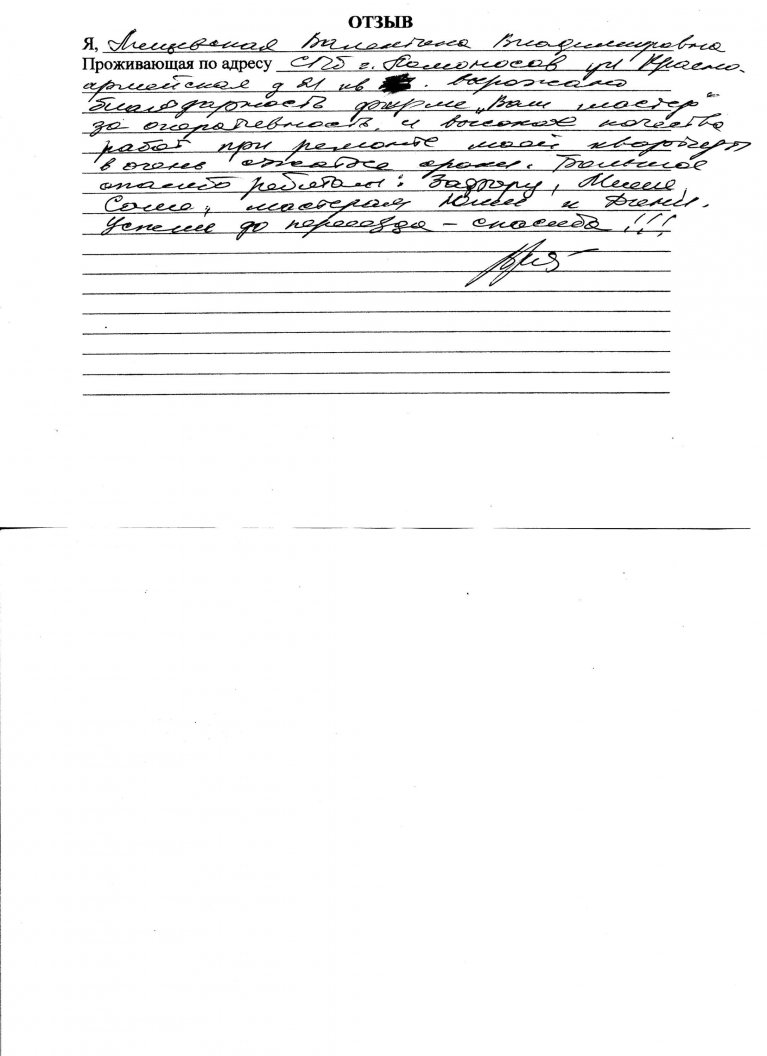 ОТЗЫВ
Я, Мещевская Валентина Владимировна
Проживающая по адресу СПб г. Ломоносов ул Красно-
армейская д 21 кв . выражаю
благодарность фирме „Ваш мастер“
за оперативность и высокое качество
работ при ремонте моей квартиры
в очень сжатые сроки. Большое
спасибо ребятам: Зафару, Мише,
Саше, мастерам Юлии и Жени.
Успели до переезда – спасибо!!!